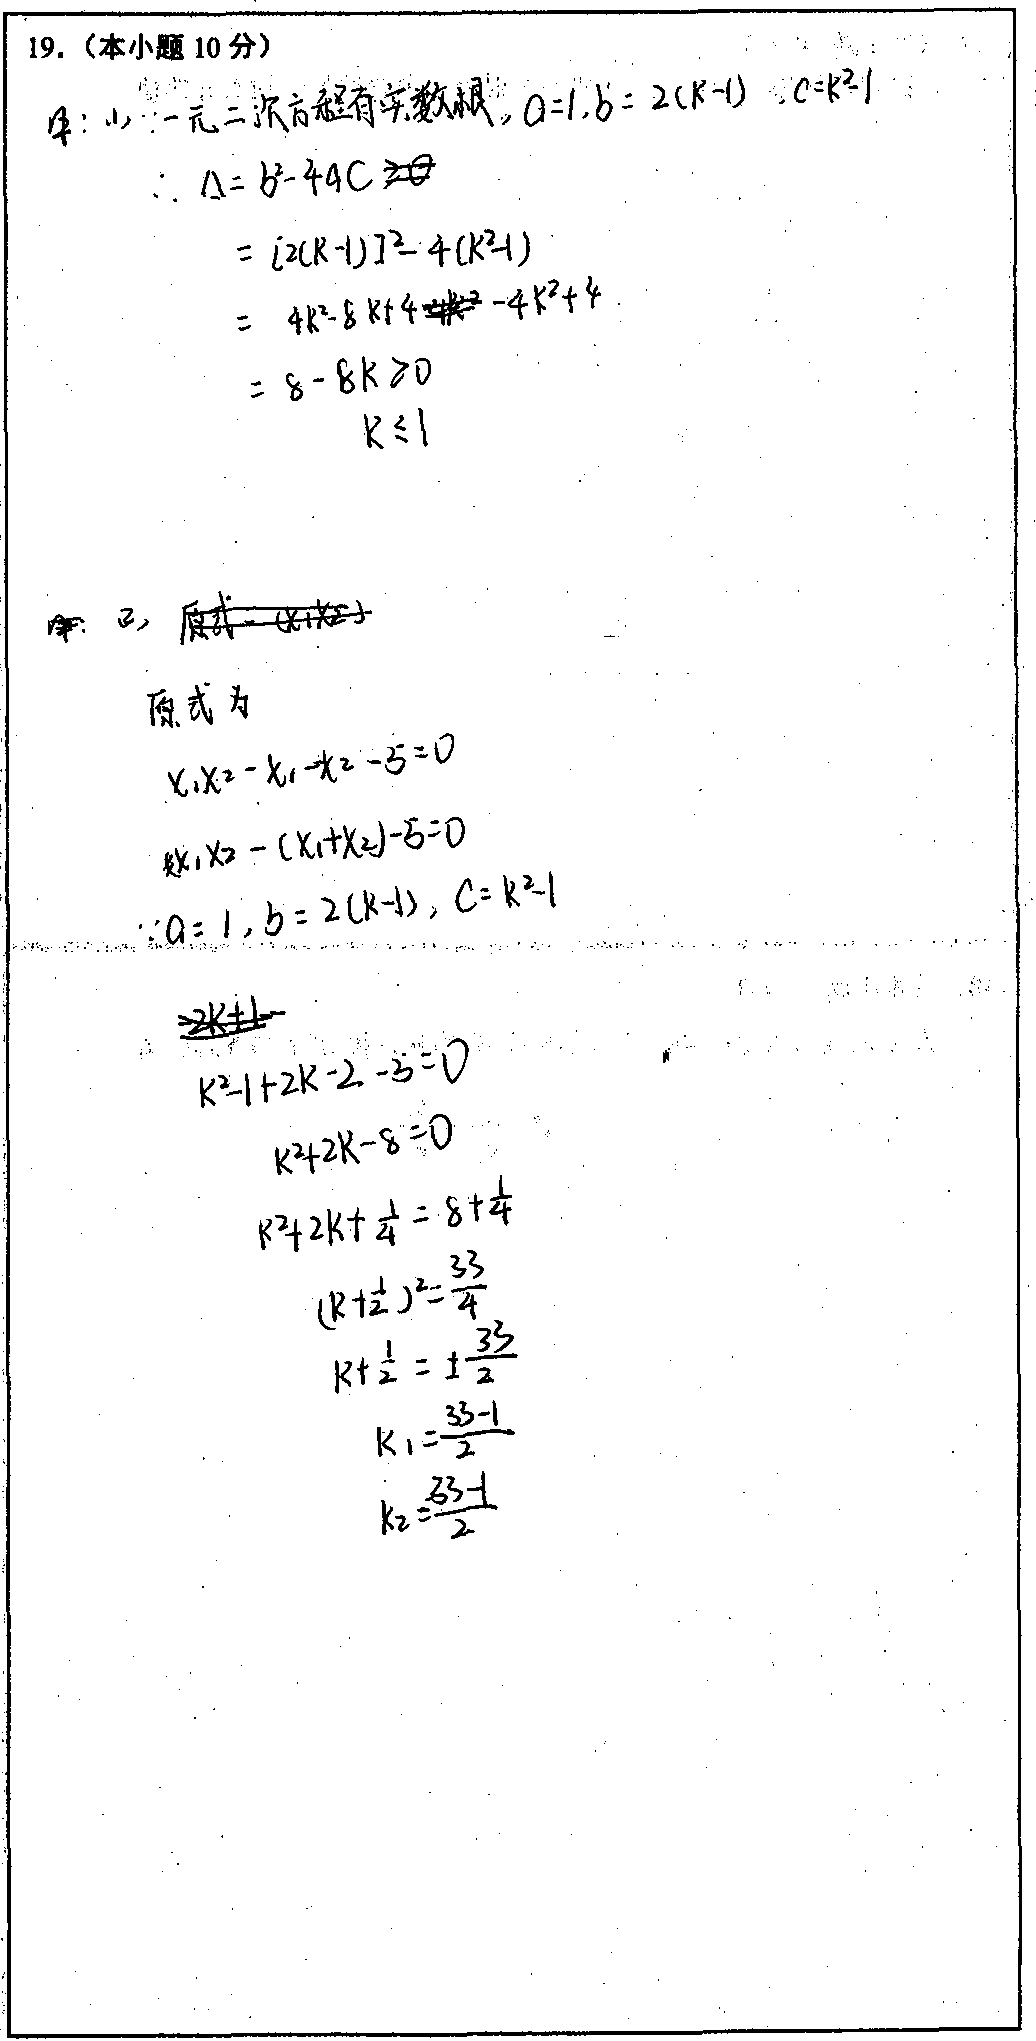 19.（本小题 10 分）
解：(1) ∵一元二次方程有实数根，a=1，b=2(k-1) c=k²-1
∴ Δ=b²-4ac ≥0
=[2(k-1)]²-4(k²-1)
= 4k²-8k+4 -4k² -4k²+4
= 8-8k≥0
k≤1
解：2, 原式=(x₁+x₂)
原式为
x₁x₂-x₁-x₂-5=0
x₁x₂-(x₁+x₂)-5=0
∵a=1，b=2(k-1)，c=k²-1
2k+1
k²-1+2k-2-5=0
k²+2k-8=0
k²+2k+1/4=8+1/4
(k+1/2)²=33/4
k+1/2=±33/2
k₁=33-1/2
k₂=33-1/2